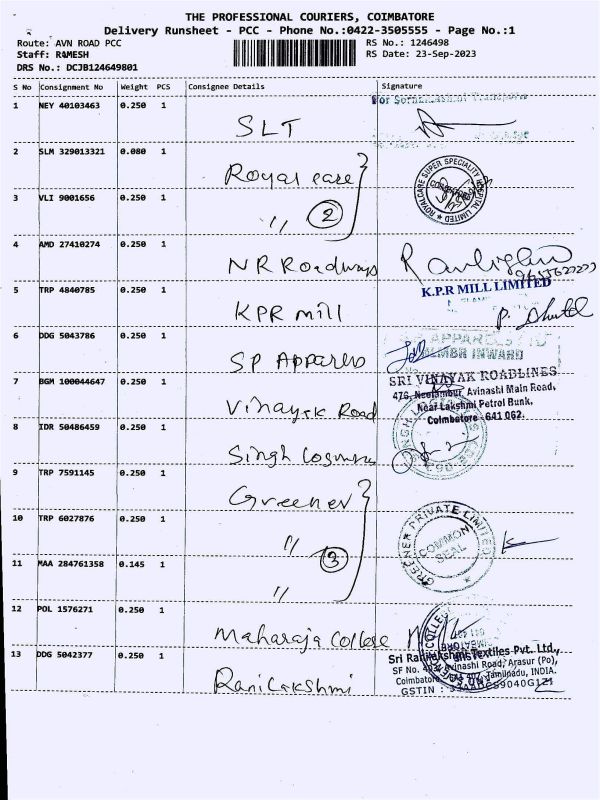 THE PROFESSIONAL COURIERS, COIMBATORE
Delivery Runsheet - PCC - Phone No.:0422-3505555 - Page No.:1
Route: AVN ROAD PCC RS No.: 1246498
Staff: RAMESH RS Date: 23-Sep-2023
DRS No.: DCJB124649801
S No Consignment No Weight PCS Consignee Details Signature
1 NEY 40103463 0.250 1
SLT
2 SLM 329013321 0.080 1
Royal care
ROYALCARE SUPER SPECIALITY HOSPITAL LIMITED
3 VLI 9001656 0.250 1
" 2
4 AMD 27410274 0.250 1
NR Roadways
5 TRP 4840785 0.250 1 K.P.R MILL LIMITED
KPR mill
6 DDG 5043786 0.250 1
SP Apparels INWARD
7 BGM 100044647 0.250 1 SRI VINAYAK ROADLINES
476, Neelambur, Avinashi Main Road,
Vinayak Road Near Lakshmi Petrol Bunk,
8 IDR 50486459 0.250 1 Coimbatore - 641 062.
Singh
9 TRP 7591145 0.250 1
Greener
10 TRP 6027876 0.250 1
" 3
PRIVATE LIMITED
COMMON
SEAL
11 MAA 284761358 0.145 1
"
12 POL 1576271 0.250 1
Maharaja College
13 DDG 5042377 0.250 1 Textiles Pvt. Ltd.,
Avinashi Road, Arasur (Po),
Ranilakshmi Tamilnadu, INDIA.
GSTIN :